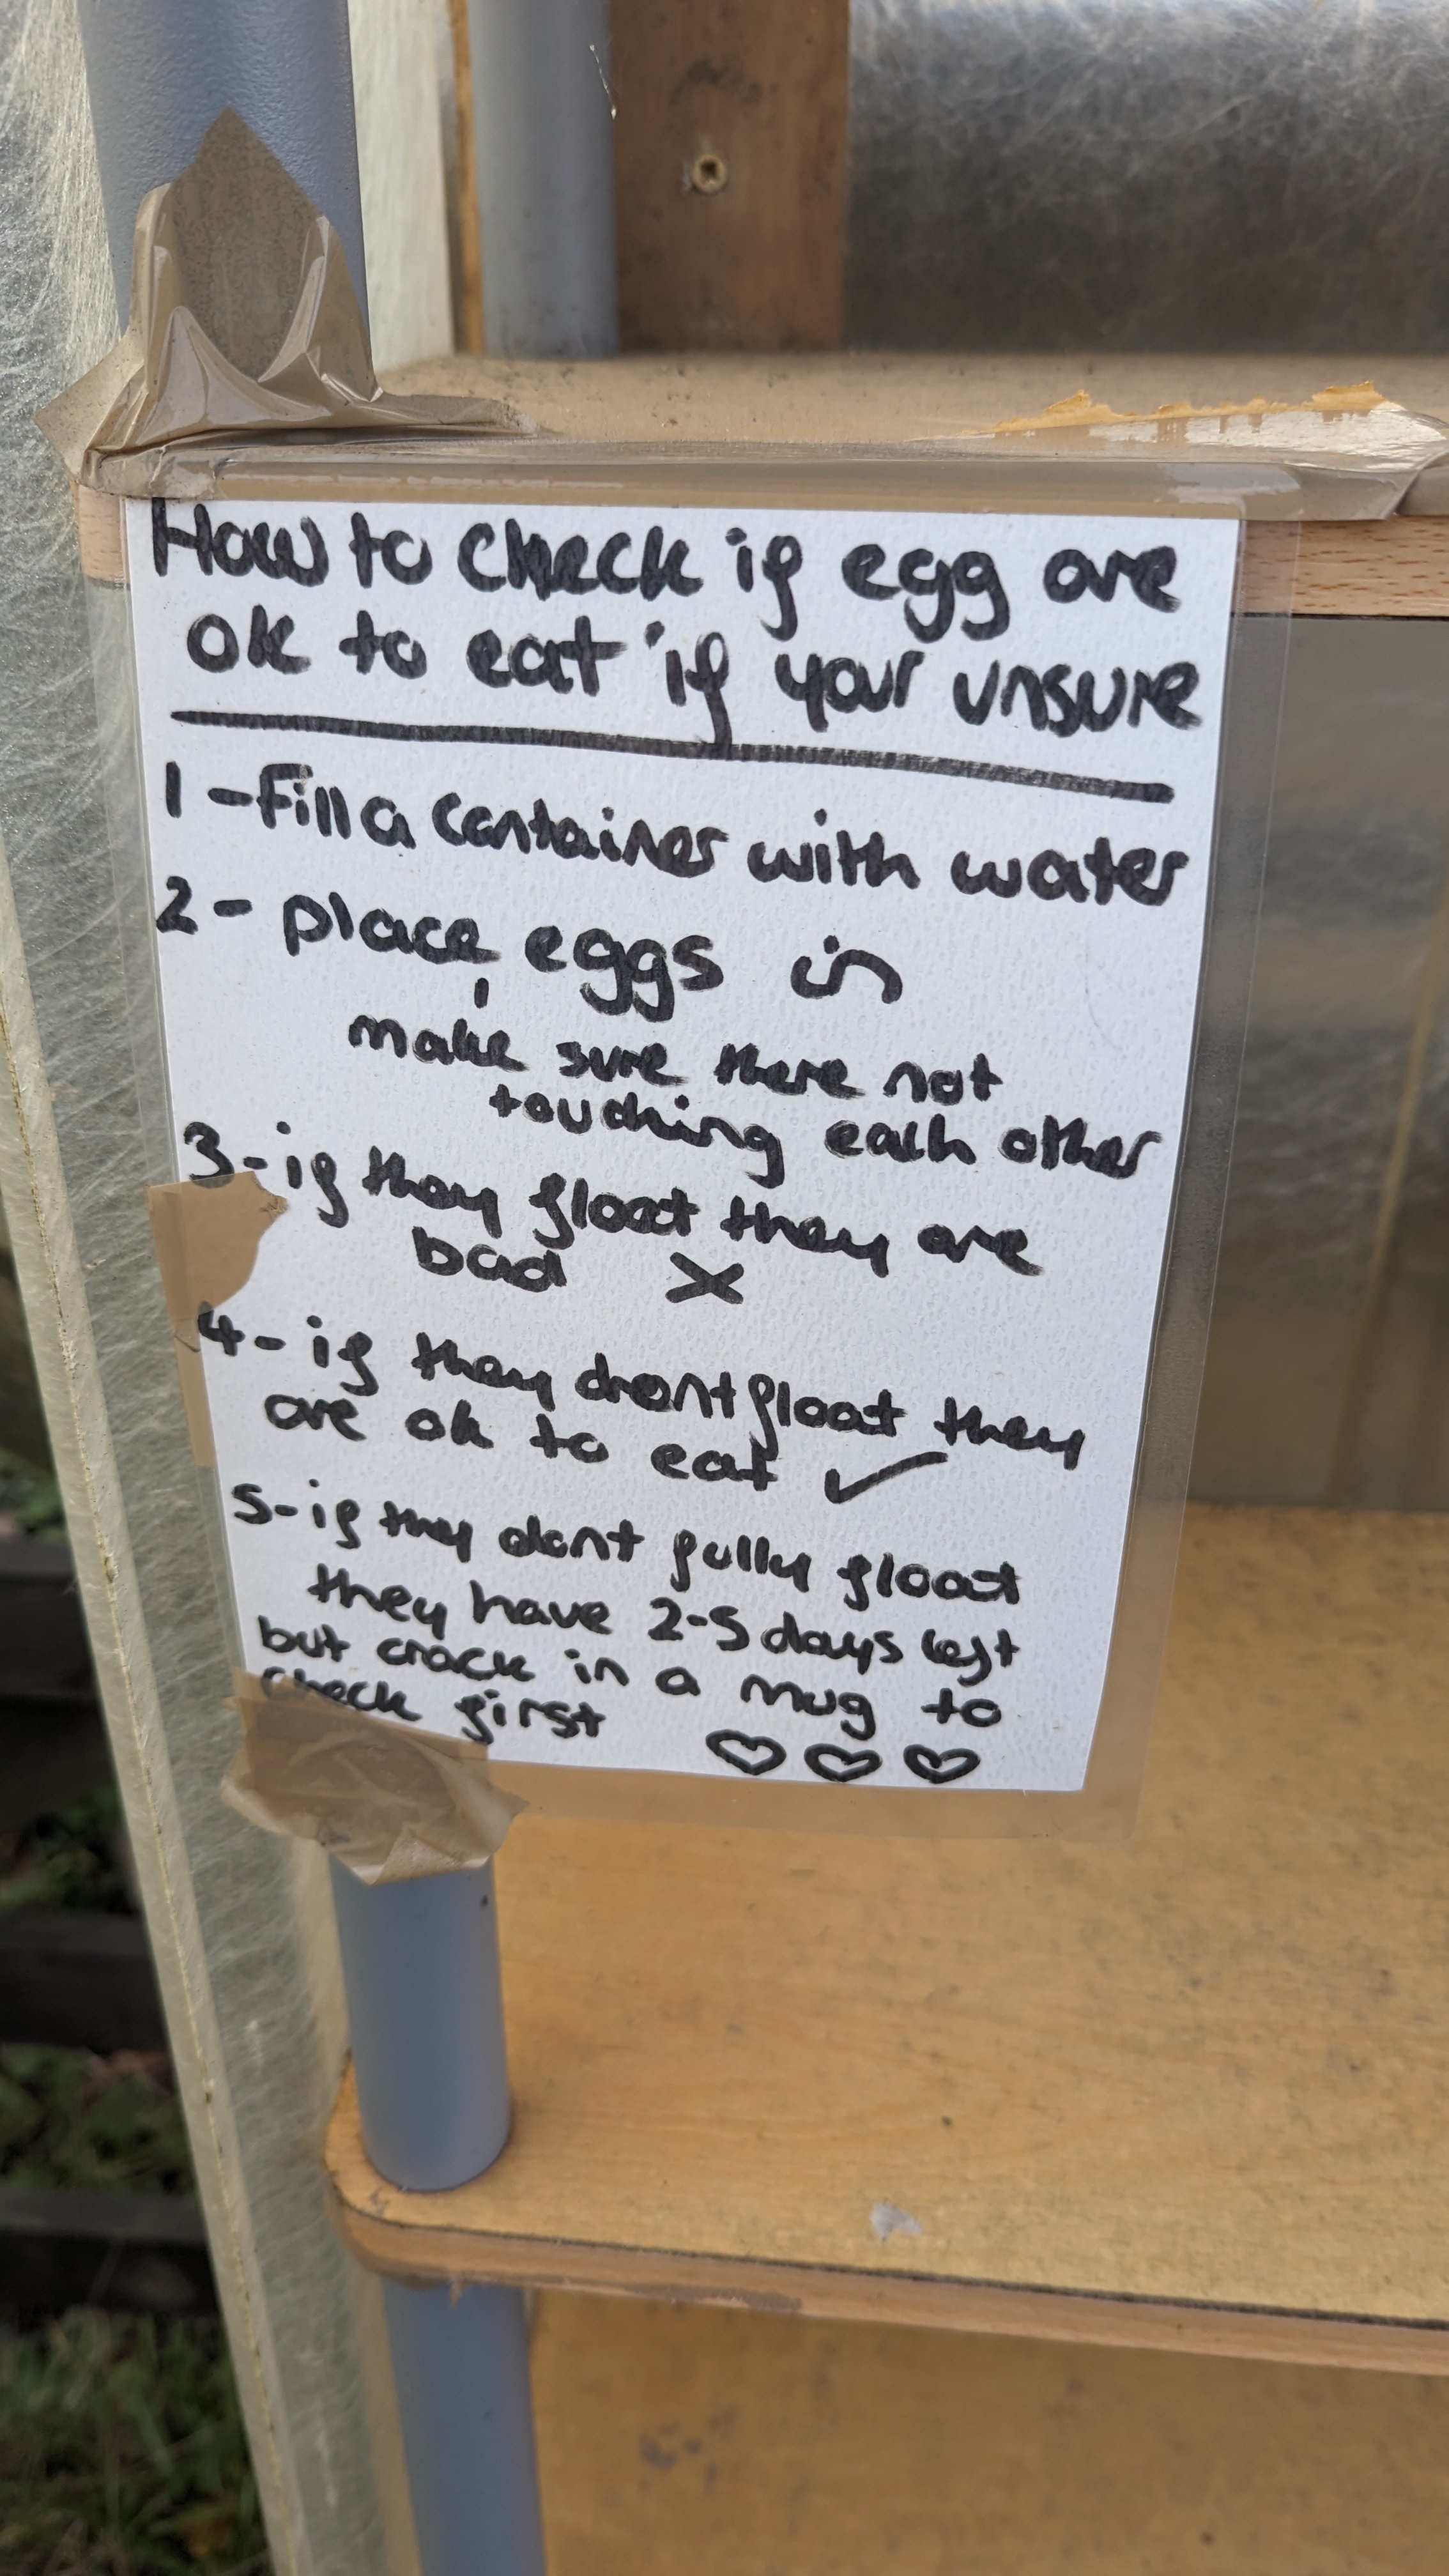 How to check if egg are
ok to eat if your unsure
1 - Fill a container with water
2 - place eggs in
make sure there not
touching each other
3 - if they float they are
bad X
4 - if they dont float they
are ok to eat ✓
5 - if they dont fully float
they have 2-5 days left
but crack in a mug to
check first ♡ ♡ ♡